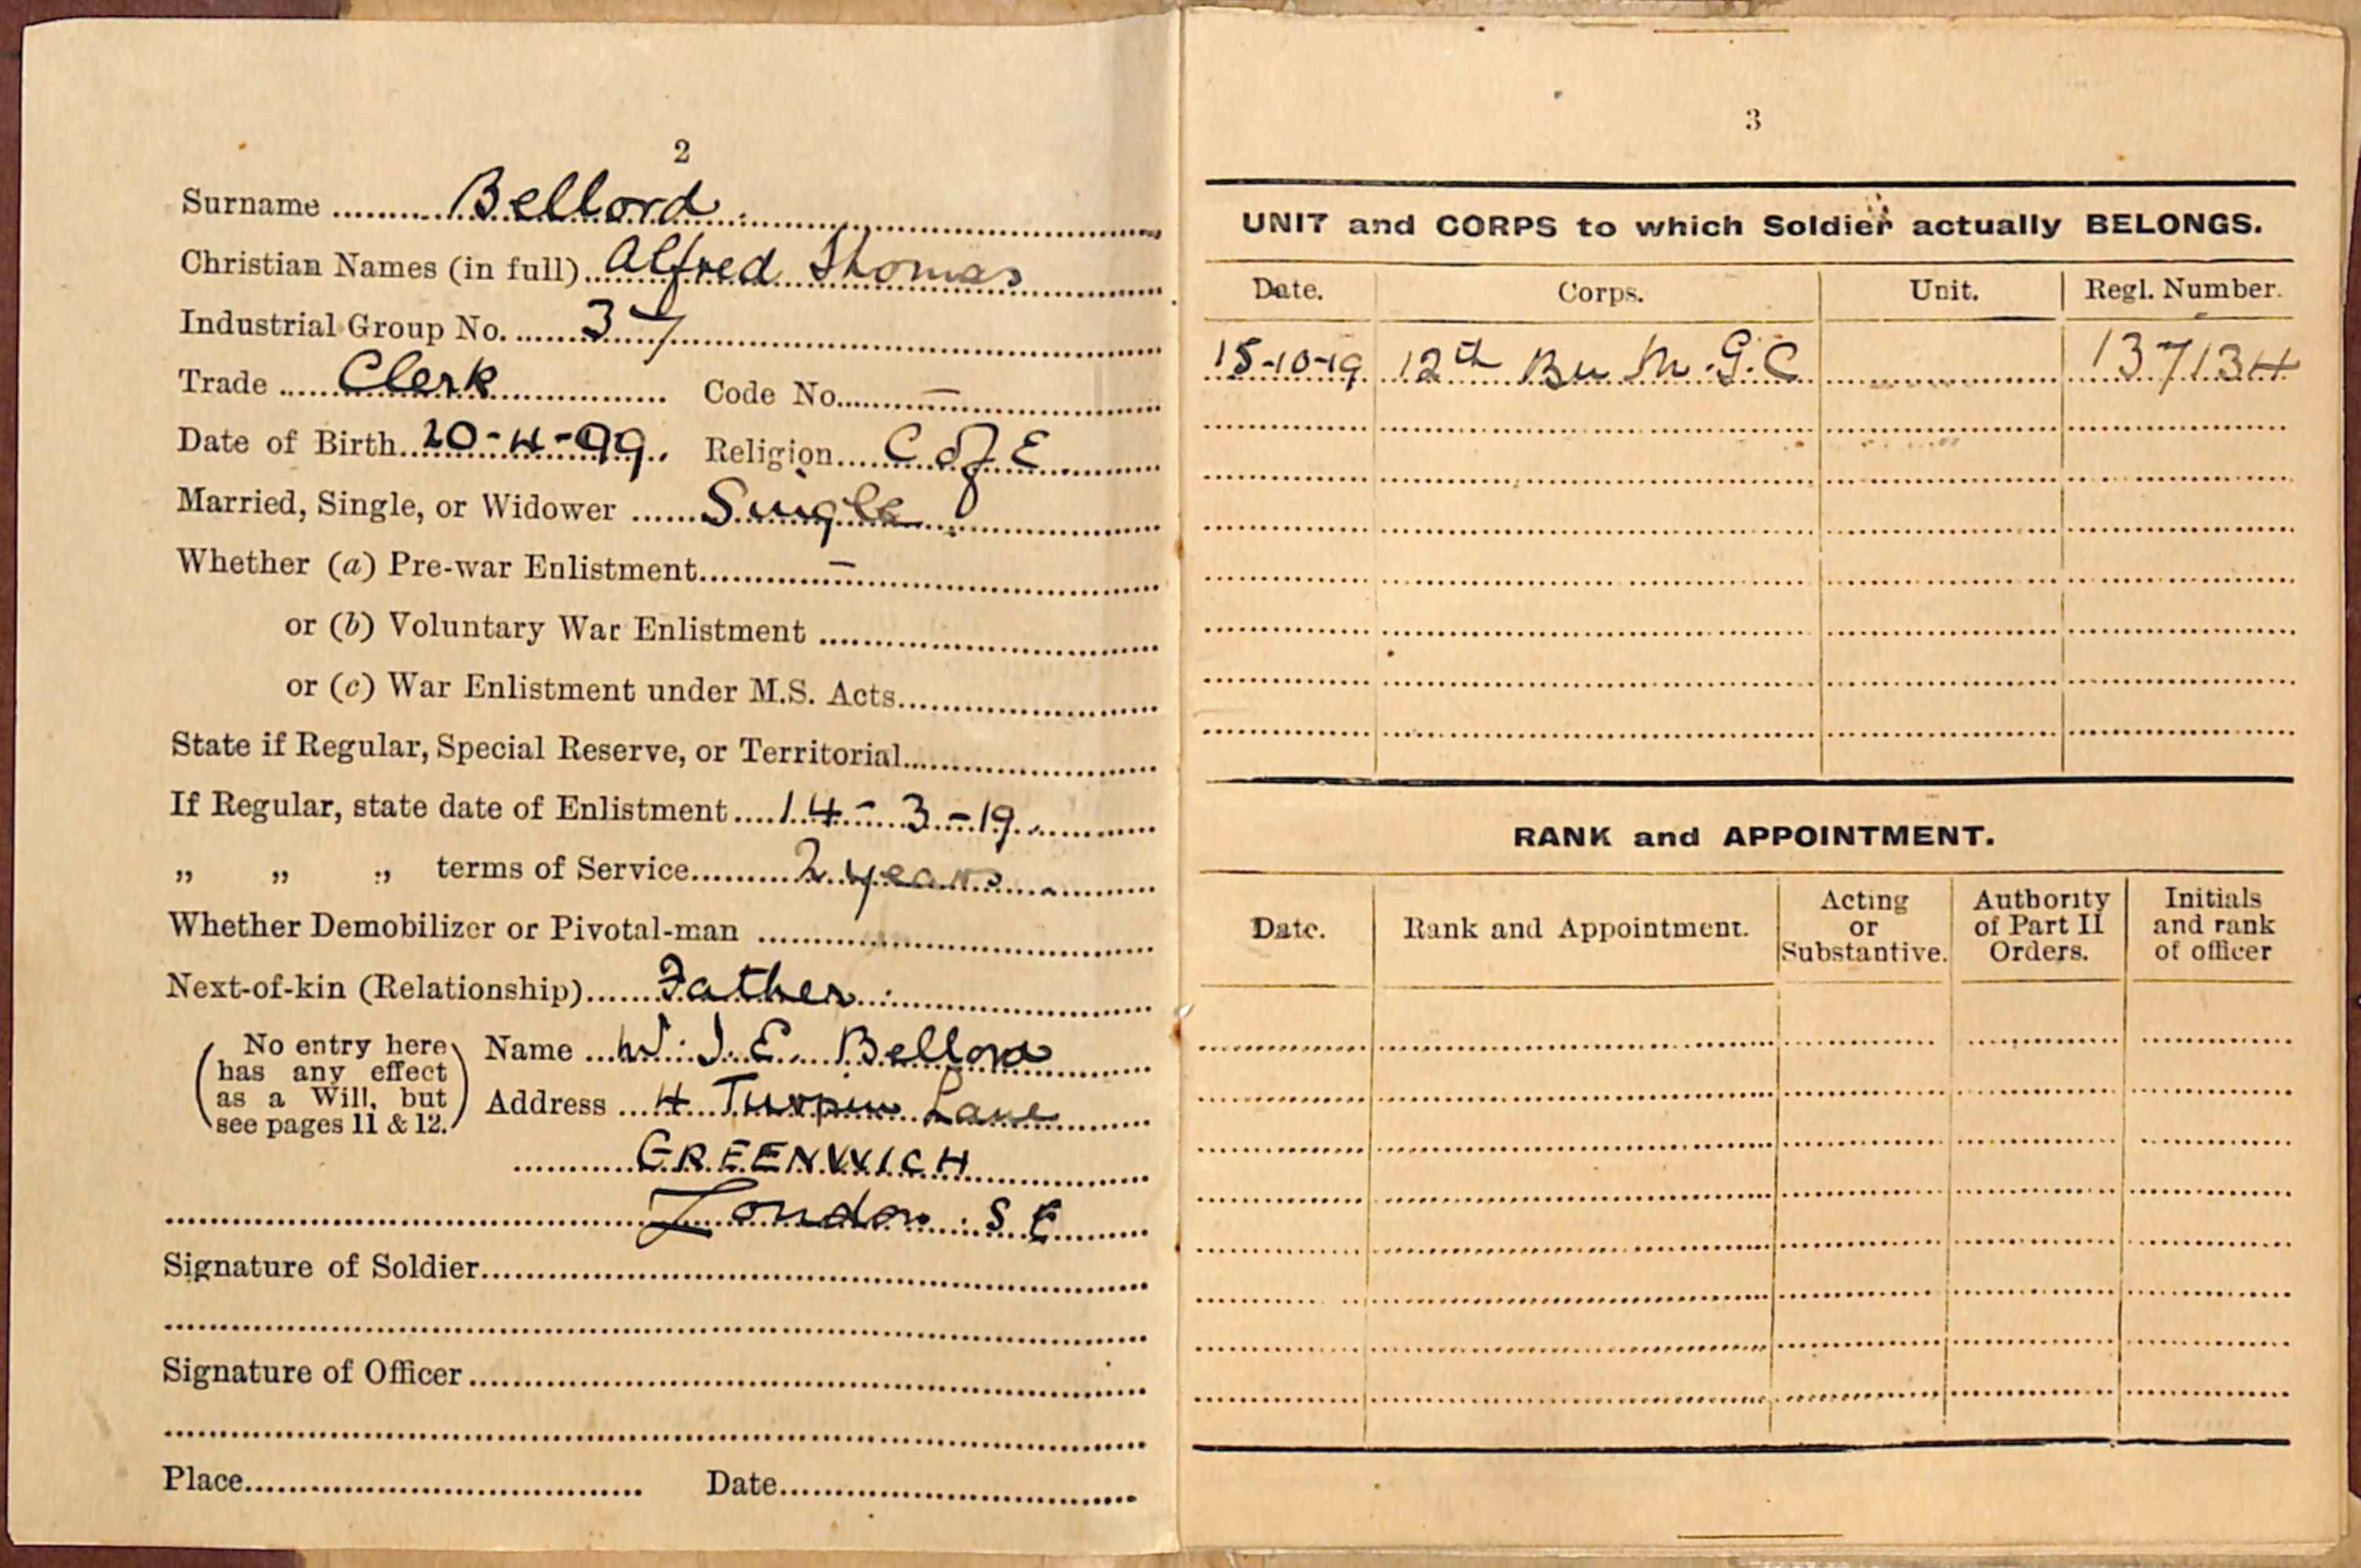 2
Surname Bellord
Christian Names (in full) Alfred Thomas
Industrial Group No. 37
Trade Clerk Code No. —
Date of Birth 20-4-99. Religion C of E
Married, Single, or Widower Single
Whether (a) Pre-war Enlistment —
or (b) Voluntary War Enlistment
or (c) War Enlistment under M.S. Acts
State if Regular, Special Reserve, or Territorial
If Regular, state date of Enlistment 14-3-19
„ „ „ terms of Service 2 years
Whether Demobilizer or Pivotal-man
Next-of-kin (Relationship) Father
(No entry here has any effect as a Will, but see pages 11 & 12.)
Name W. J. E. Bellord
Address 4 Turpin Lane
GREENWICH
London S E
Signature of Soldier
Signature of Officer
Place Date
3
UNIT and CORPS to which Soldier actually BELONGS.
Date. Corps. Unit. Regl. Number.
15-10-19 12th Bn M.G.C 137134
RANK and APPOINTMENT.
Date. Rank and Appointment. Acting or Substantive. Authority of Part II Orders. Initials and rank of officer